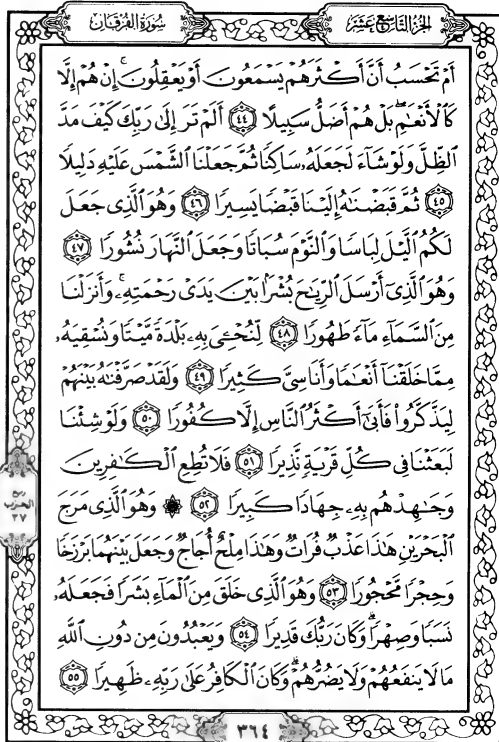 الجزء التاسع عشر
سورة الفرقان
أَمْ تَحْسَبُ أَنَّ أَكْثَرَهُمْ يَسْمَعُونَ أَوْ يَعْقِلُونَ ۚ إِنْ هُمْ إِلَّا
كَالْأَنْعَٰمِ ۖ بَلْ هُمْ أَضَلُّ سَبِيلًا ٤٤ أَلَمْ تَرَ إِلَىٰ رَبِّكَ كَيْفَ مَدَّ
الظِّلَّ وَلَوْ شَآءَ لَجَعَلَهُۥ سَاكِنًا ثُمَّ جَعَلْنَا الشَّمْسَ عَلَيْهِ دَلِيلًا
٤٥ ثُمَّ قَبَضْنَٰهُ إِلَيْنَا قَبْضًا يَسِيرًا ٤٦ وَهُوَ الَّذِى جَعَلَ
لَكُمُ الَّيْلَ لِبَاسًا وَالنَّوْمَ سُبَاتًا وَجَعَلَ النَّهَارَ نُشُورًا ٤٧
وَهُوَ الَّذِىٓ أَرْسَلَ الرِّيَٰحَ بُشْرًۢا بَيْنَ يَدَىْ رَحْمَتِهِۦ ۚ وَأَنزَلْنَا
مِنَ السَّمَآءِ مَآءً طَهُورًا ٤٨ لِّنُحْـِۧىَ بِهِۦ بَلْدَةً مَّيْتًا وَنُسْقِيَهُۥ
مِمَّا خَلَقْنَآ أَنْعَٰمًا وَأَنَاسِىَّ كَثِيرًا ٤٩ وَلَقَدْ صَرَّفْنَٰهُ بَيْنَهُمْ
لِيَذَّكَّرُوا۟ فَأَبَىٰٓ أَكْثَرُ النَّاسِ إِلَّا كُفُورًا ٥٠ وَلَوْ شِئْنَا
لَبَعَثْنَا فِى كُلِّ قَرْيَةٍ نَّذِيرًا ٥١ فَلَا تُطِعِ الْكَٰفِرِينَ
وَجَٰهِدْهُم بِهِۦ جِهَادًا كَبِيرًا ٥٢ ۞ وَهُوَ الَّذِى مَرَجَ
الْبَحْرَيْنِ هَٰذَا عَذْبٌ فُرَاتٌ وَهَٰذَا مِلْحٌ أُجَاجٌ وَجَعَلَ بَيْنَهُمَا بَرْزَخًا
وَحِجْرًا مَّحْجُورًا ٥٣ وَهُوَ الَّذِى خَلَقَ مِنَ الْمَآءِ بَشَرًا فَجَعَلَهُۥ
نَسَبًا وَصِهْرًا ۗ وَكَانَ رَبُّكَ قَدِيرًا ٥٤ وَيَعْبُدُونَ مِن دُونِ اللَّهِ
مَا لَا يَنفَعُهُمْ وَلَا يَضُرُّهُمْ ۗ وَكَانَ الْكَافِرُ عَلَىٰ رَبِّهِۦ ظَهِيرًا ٥٥
ربع
الحزب
٣٧
٣٦٤